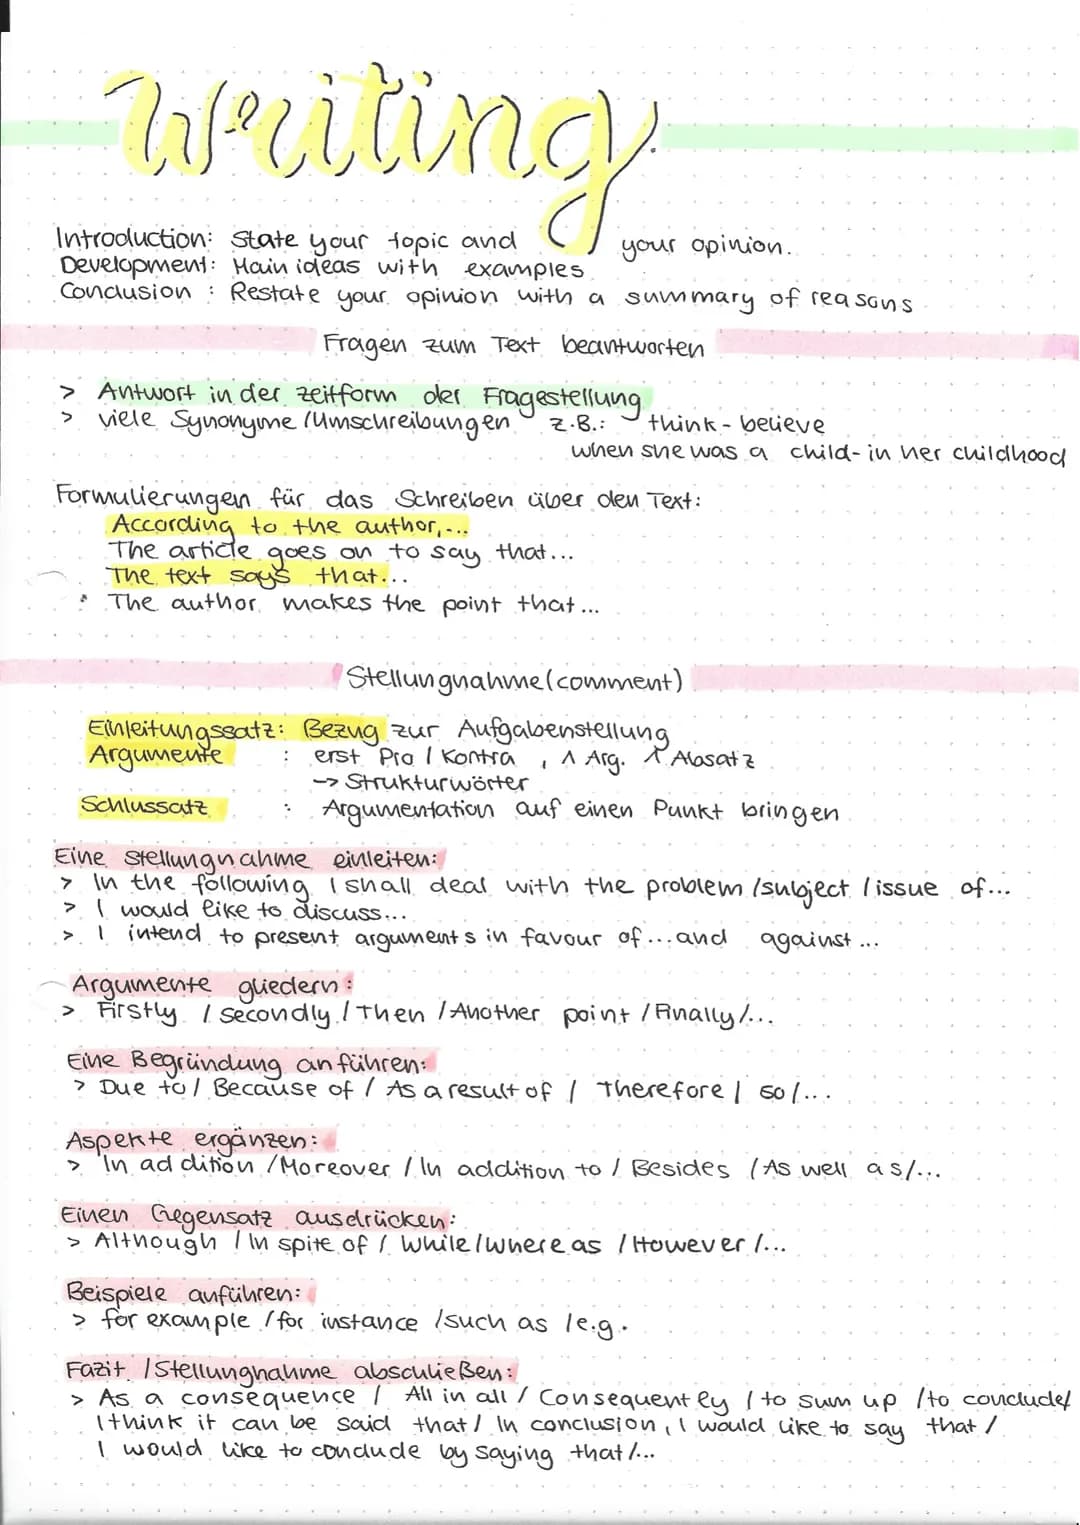 Writing
Introduction: State your topic and your opinion.
Development: Main ideas with examples
Conclusion : Restate your opinion with a summary of reasons
Fragen zum Text beantworten
> Antwort in der Zeitform der Fragestellung
> viele Synonyme / Umschreibungen z.B.: think - believe
when she was a child - in her childhood
Formulierungen für das Schreiben über den Text:
According to the author,...
The article goes on to say that...
The text says that...
The author makes the point that...
Stellungnahme (comment)
Einleitungssatz: Bezug zur Aufgabenstellung
Argumente : erst Pro / Kontra , 1 Arg. 1 Absatz
-> Strukturwörter
Schlussatz : Argumentation auf einen Punkt bringen
Eine Stellungnahme einleiten:
> In the following I shall deal with the problem / subject / issue of...
> I would like to discuss...
> I intend to present arguments in favour of ... and against ...
Argumente gliedern:
> Firstly / secondly / Then / Another point / Finally /...
Eine Begründung anführen:
> Due to / Because of / As a result of / Therefore / so /...
Aspekte ergänzen:
> In addition / Moreover / In addition to / Besides / As well as /...
Einen Gegensatz ausdrücken:
> Although / In spite of / While / whereas / However /...
Beispiele anführen:
> for example / for instance / such as / e.g.
Fazit / Stellungnahme abschließen:
> As a consequence / All in all / Consequently / to sum up / to conclude /
I think it can be said that / In conclusion, I would like to say that /
I would like to conclude by saying that /...